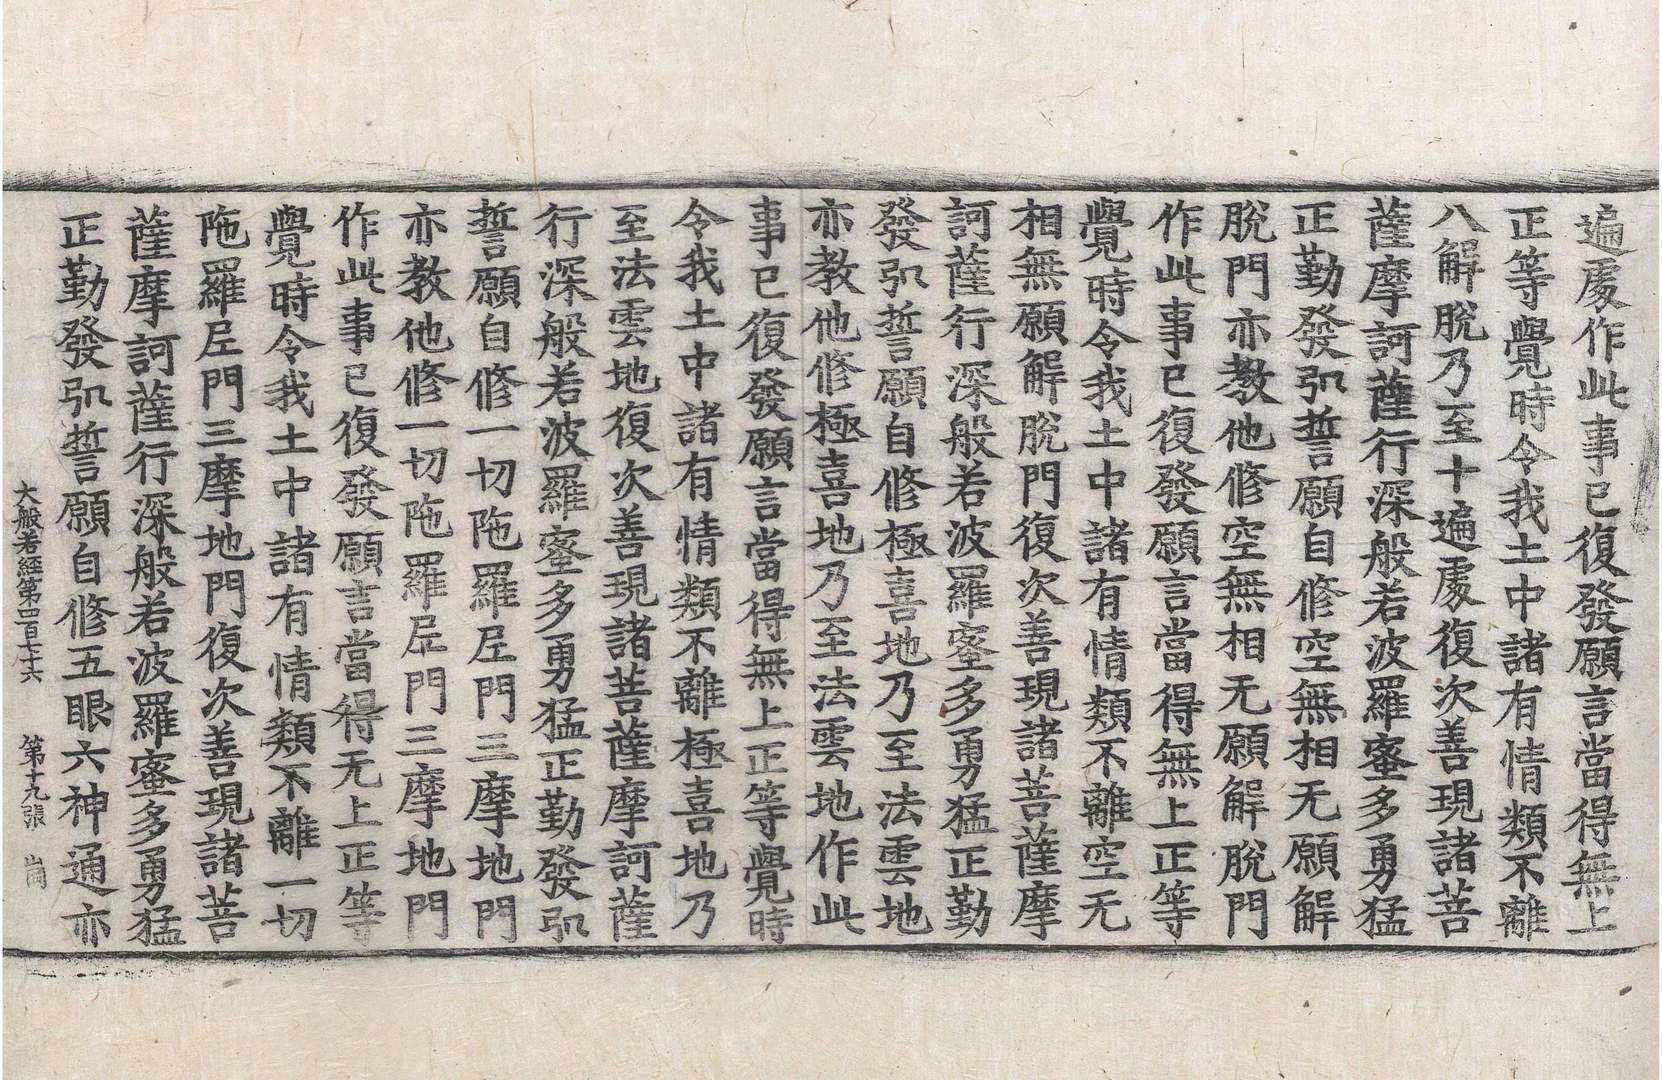 遍處作此事已復發願言當得無上
正等覺時令我土中諸有情類不離
八解脫乃至十遍處復次善現諸菩
薩摩訶薩行深般若波羅蜜多勇猛
正勤發弘誓願自修空無相无願解
脫門亦教他修空無相无願解脫門
作此事已復發願言當得無上正等
覺時令我土中諸有情類不離空无
相無願解脫門復次善現諸菩薩摩
訶薩行深般若波羅蜜多勇猛正勤
發弘誓願自修極喜地乃至法雲地
亦教他修極喜地乃至法雲地作此
事已復發願言當得無上正等覺時
令我土中諸有情類不離極喜地乃
至法雲地復次善現諸菩薩摩訶薩
行深般若波羅蜜多勇猛正勤發弘
誓願自修一切陁羅尼門三摩地門
亦教他修一切陁羅尼門三摩地門
作此事已復發願言當得无上正等
覺時令我土中諸有情類不離一切
陁羅尼門三摩地門復次善現諸菩
薩摩訶薩行深般若波羅蜜多勇猛
正勤發弘誓願自修五眼六神通亦
大般若經第四百七十六 第十九張